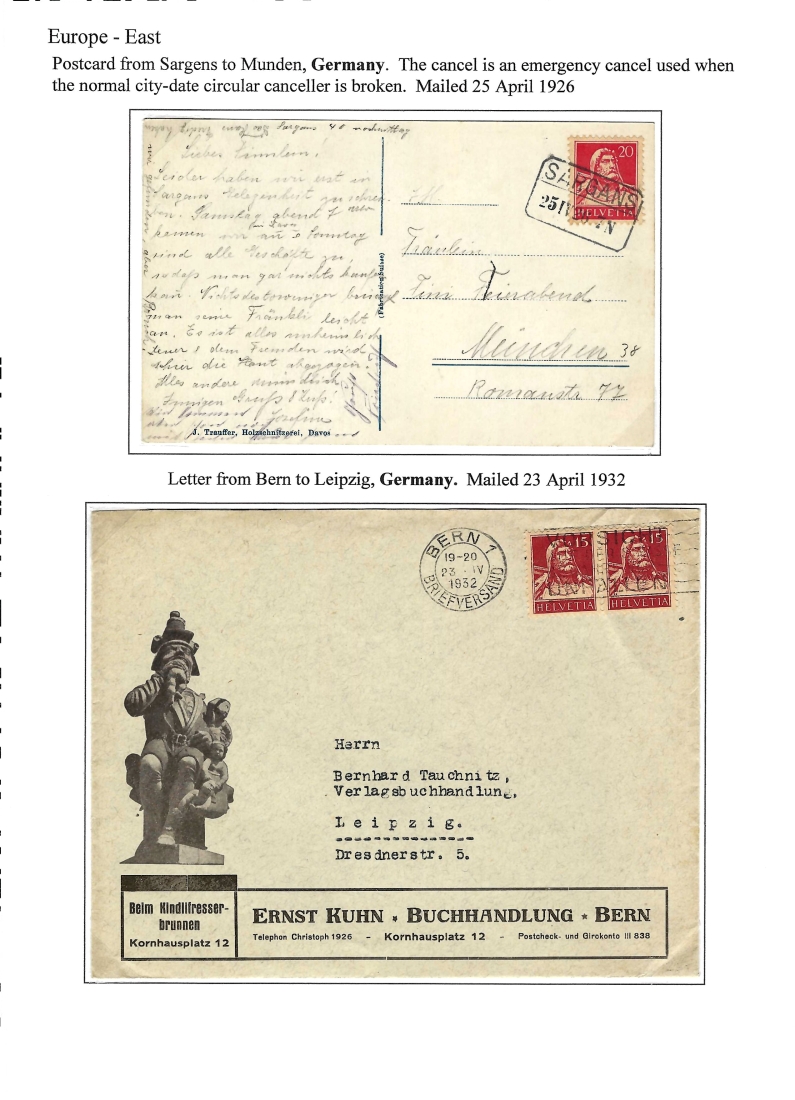 Europe - East
Postcard from Sargens to Munden, Germany. The cancel is an emergency cancel used when
the normal city-date circular canceller is broken. Mailed 25 April 1926
Sargans 40 nachmittag
Leider haben wir erst in
Sargans Gelegenheit zu schrei-
ben. Samstag abend 7
kamen wir an & Sonntag
sind alle Geschäfte zu,
sodaß man gar nichts kaufen
kan. Nichtsdestoweniger
man seine Fränkli leicht
an. Es ist alles unheimlich
teuer & dem Fremden wird
schier die Haut abgezogen.
Alles andere mündlich
Innigen Gruß & Kuß!
Josefine
J. Trauffer, Holzschnitzerei, Davos
(Fabrication Suisse)
20
HELVETIA
SARGANS
25 IV
Fräulein
Fini Feinabend
München 38
Romanstr 77
Letter from Bern to Leipzig, Germany. Mailed 23 April 1932
BERN 1
19-20
23 · IV
1932
BRIEFVERSAND
15 15
HELVETIA HELVETIA
Herrn
Bernhard Tauchnitz,
Verlagsbuchhandlung,
Leipzig.
Dresdnerstr. 5.
Beim Kindlifresser-
brunnen
Kornhausplatz 12
ERNST KUHN * BUCHHANDLUNG * BERN
Telephon Christoph 1926 - Kornhausplatz 12 - Postcheck- und Girokonto III 838